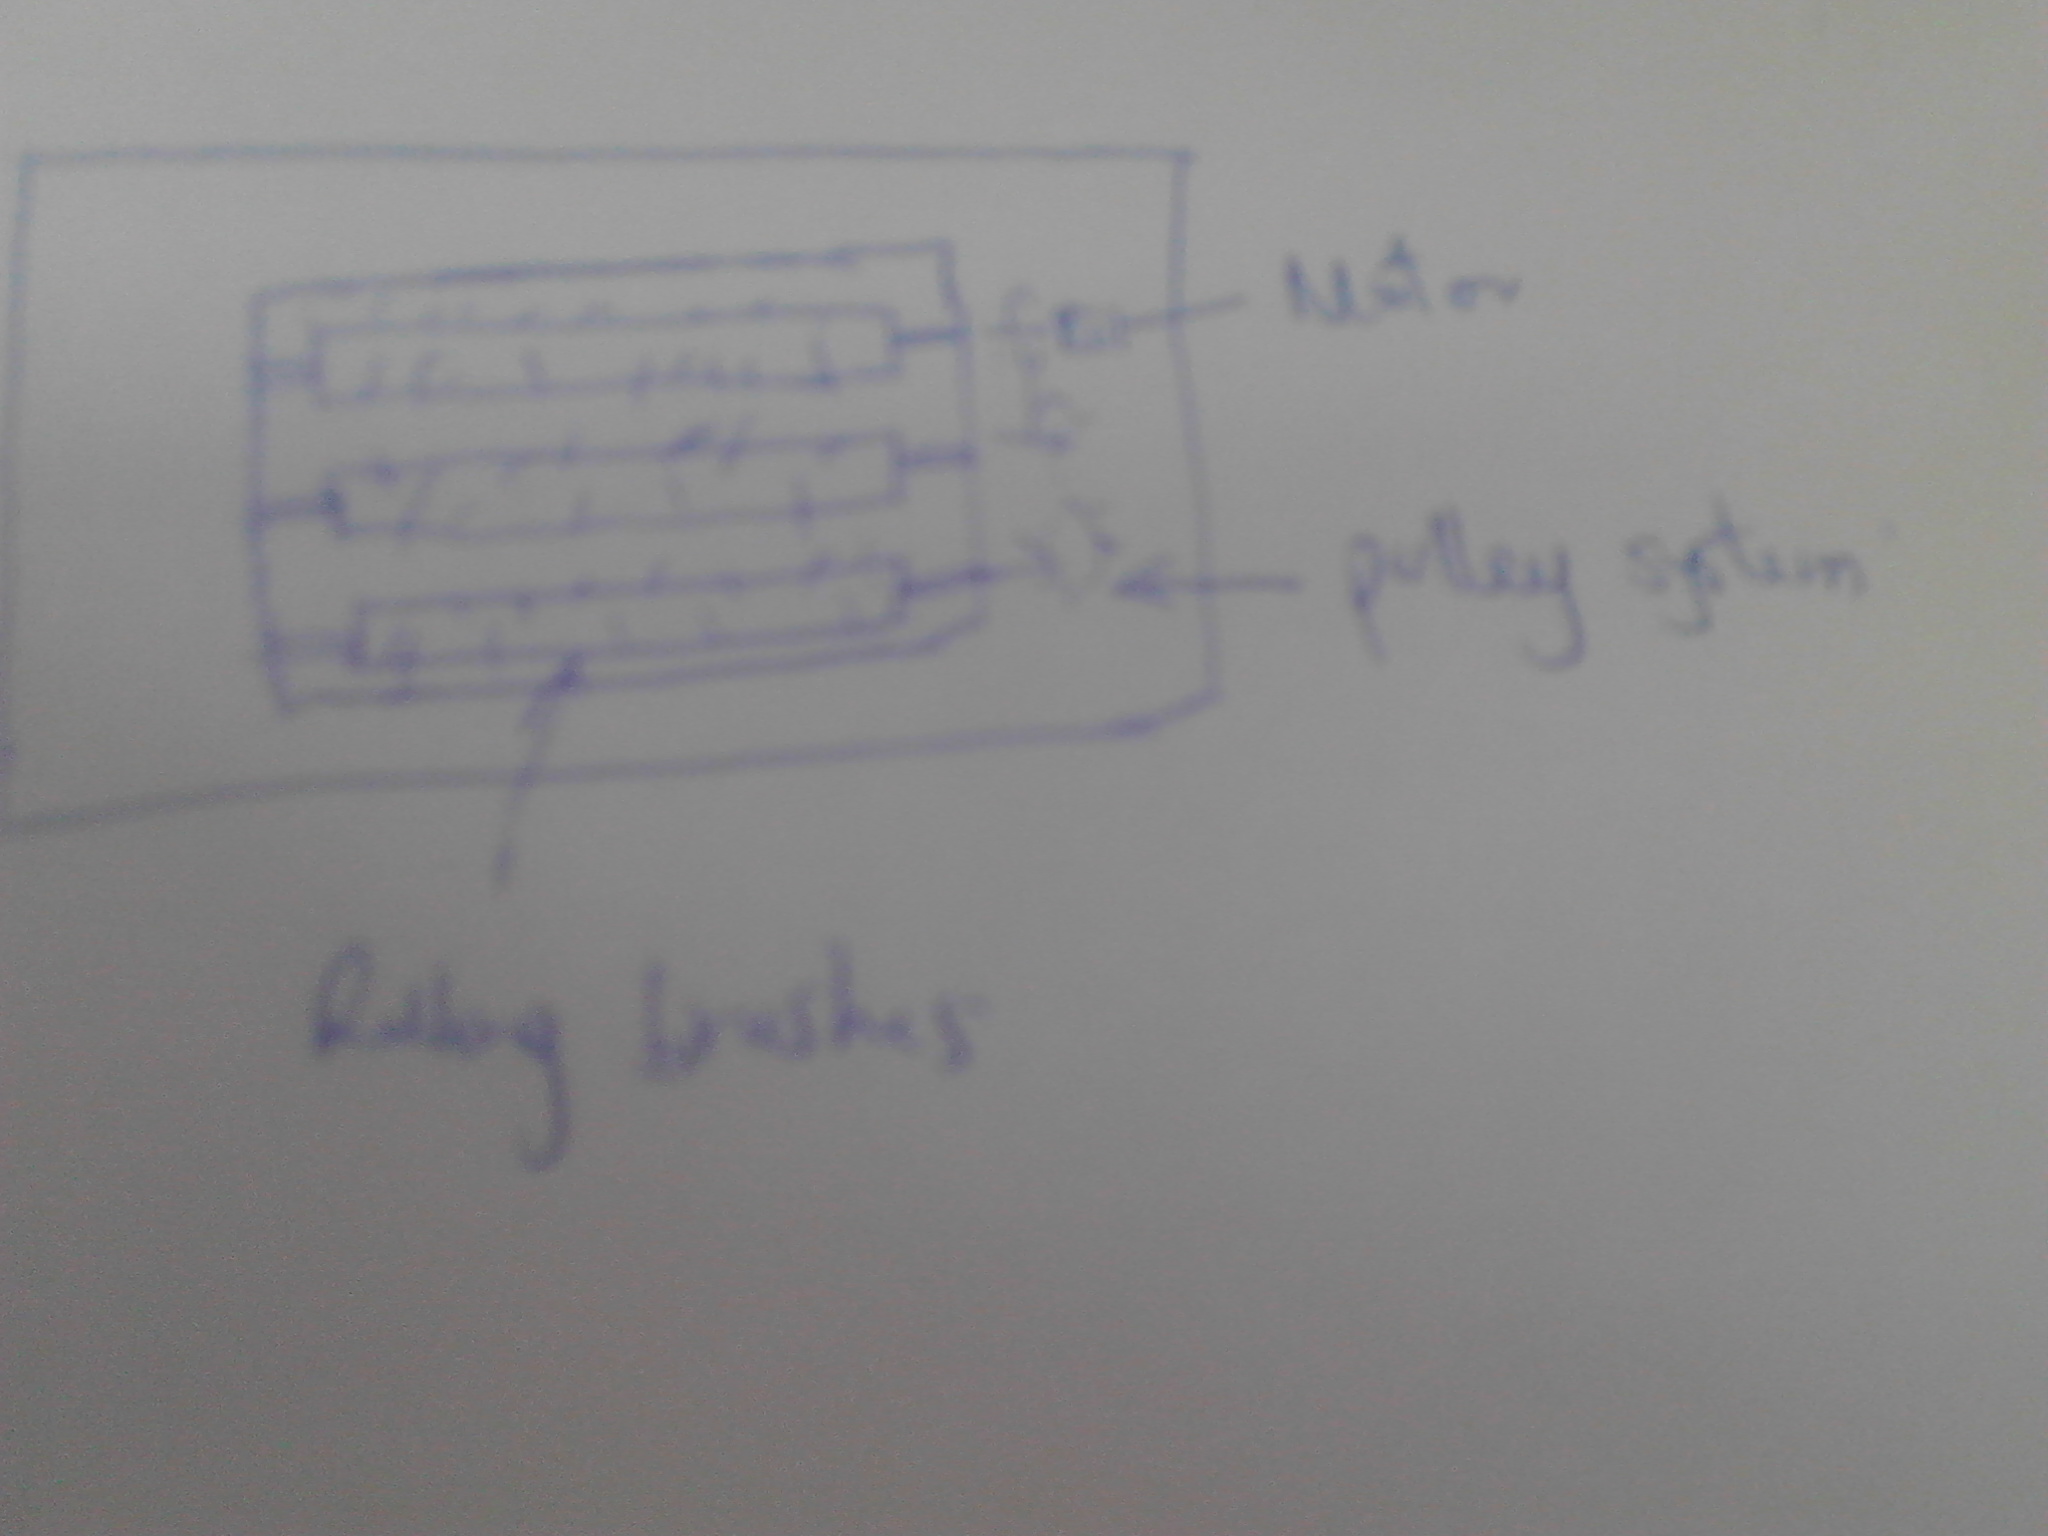 Motor
pulley system
Rolling brushes